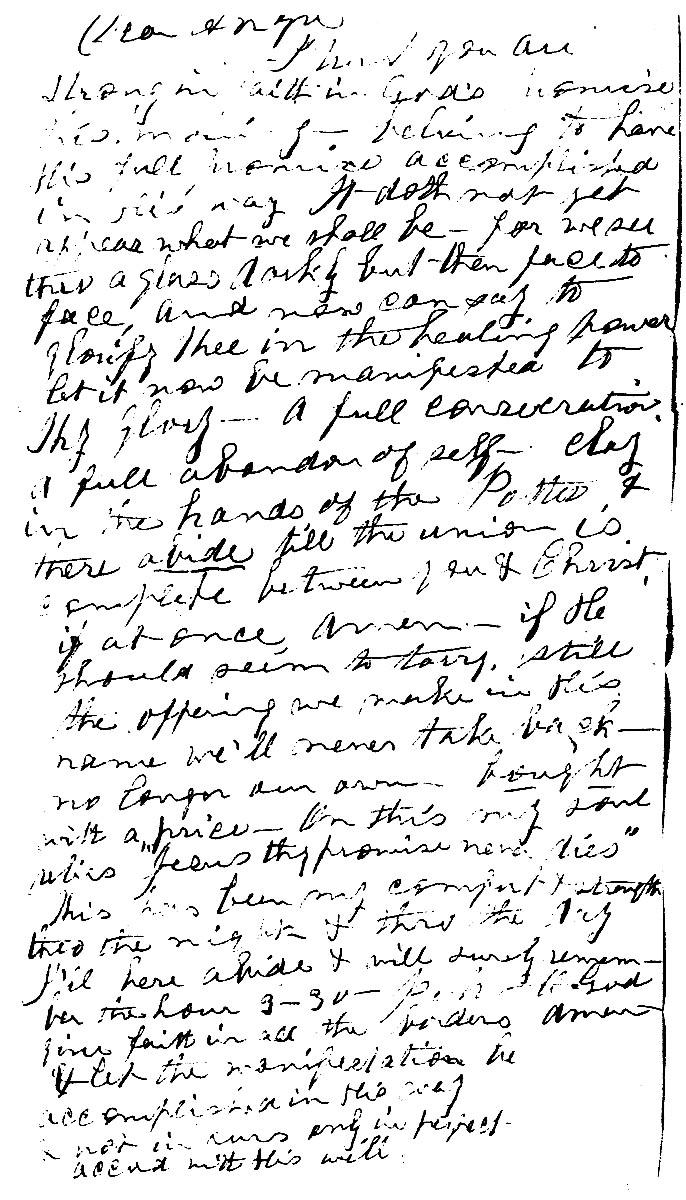 Dear Angie
I trust you are
strong in faith in God's promise
this morning — believing to have
His full promise accomplished
in His way It doth not yet
appear what we shall be — for we see
thro a glass darkly but then face to
face, and now can say to
glorify Thee in the healing power
let it now be manifested to
Thy glory — A full consecration.
A full abandon of self — clay
in the hands of the Potter, &
there abide till the union is
complete between you & Christ,
if at once, Amen — if He
should seem to tarry, still
the offering we make in His
name we'll never take back —
no longer our own — bought
with a price — On this my soul
relies "Jesus thy promise never dies"
This has been my comfort & strength
thro the night & thro the day
I'll here abide & will surely remem-
ber the hour 3-30 — God
give faith in all the borders amen
& let the manifestation be
accomplished in His way
& not in ours only in perfect
accord with His will.